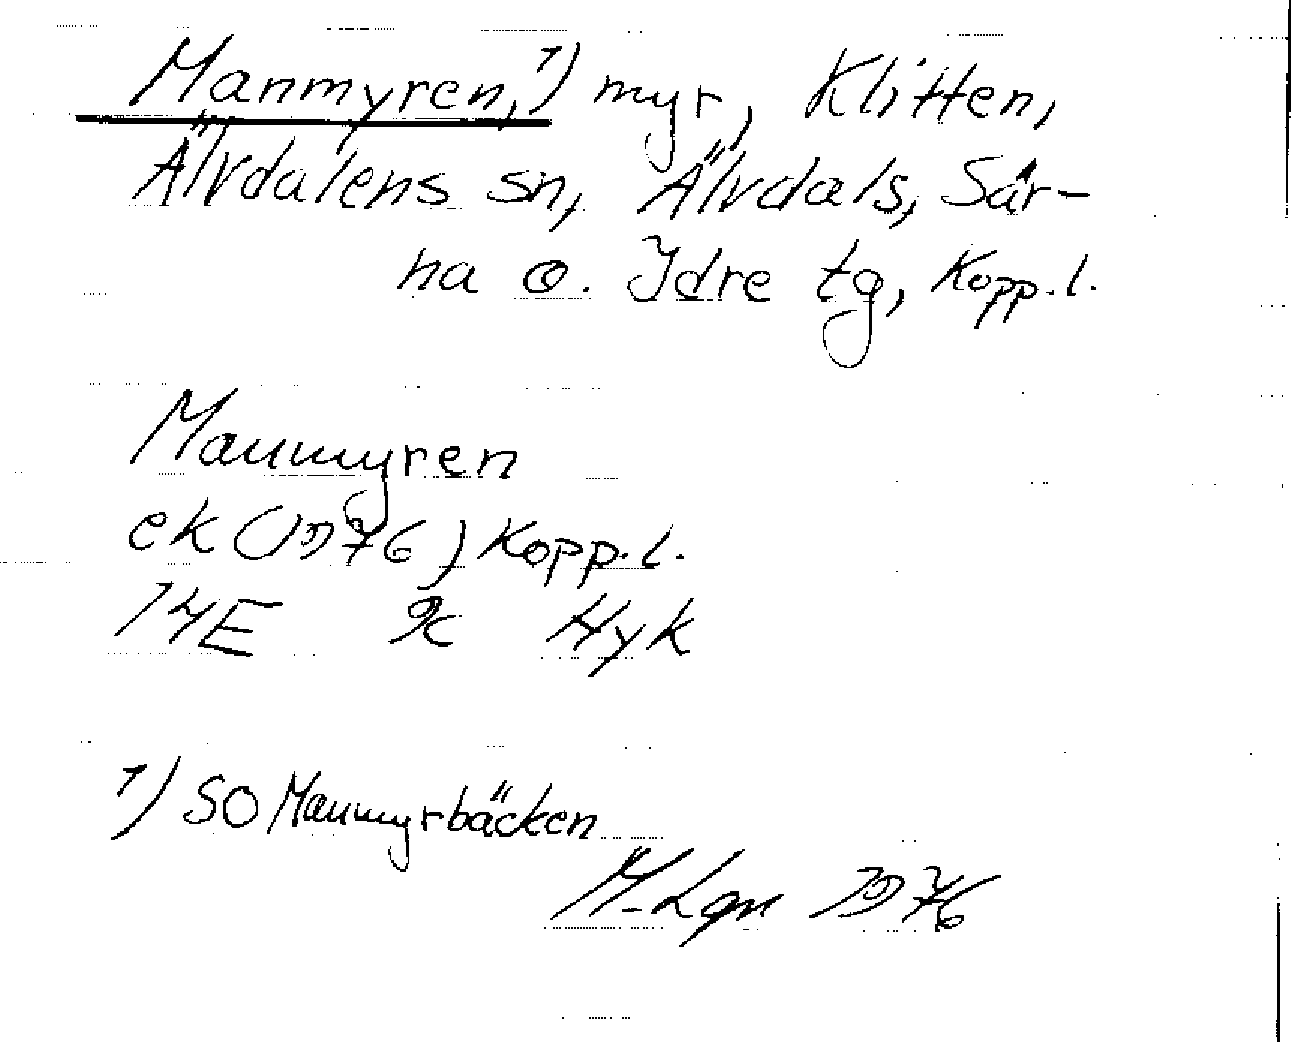 Manmyren,¹) myr, Klitten,
Älvdalens sn, Älvdals, Sär-
na o. Idre tg, Kopp. l.
Manmyren
ek (1976) Kopp. l.
14E 9c Hyk
1) SO Manmyrbäcken
M. Lgn 1976